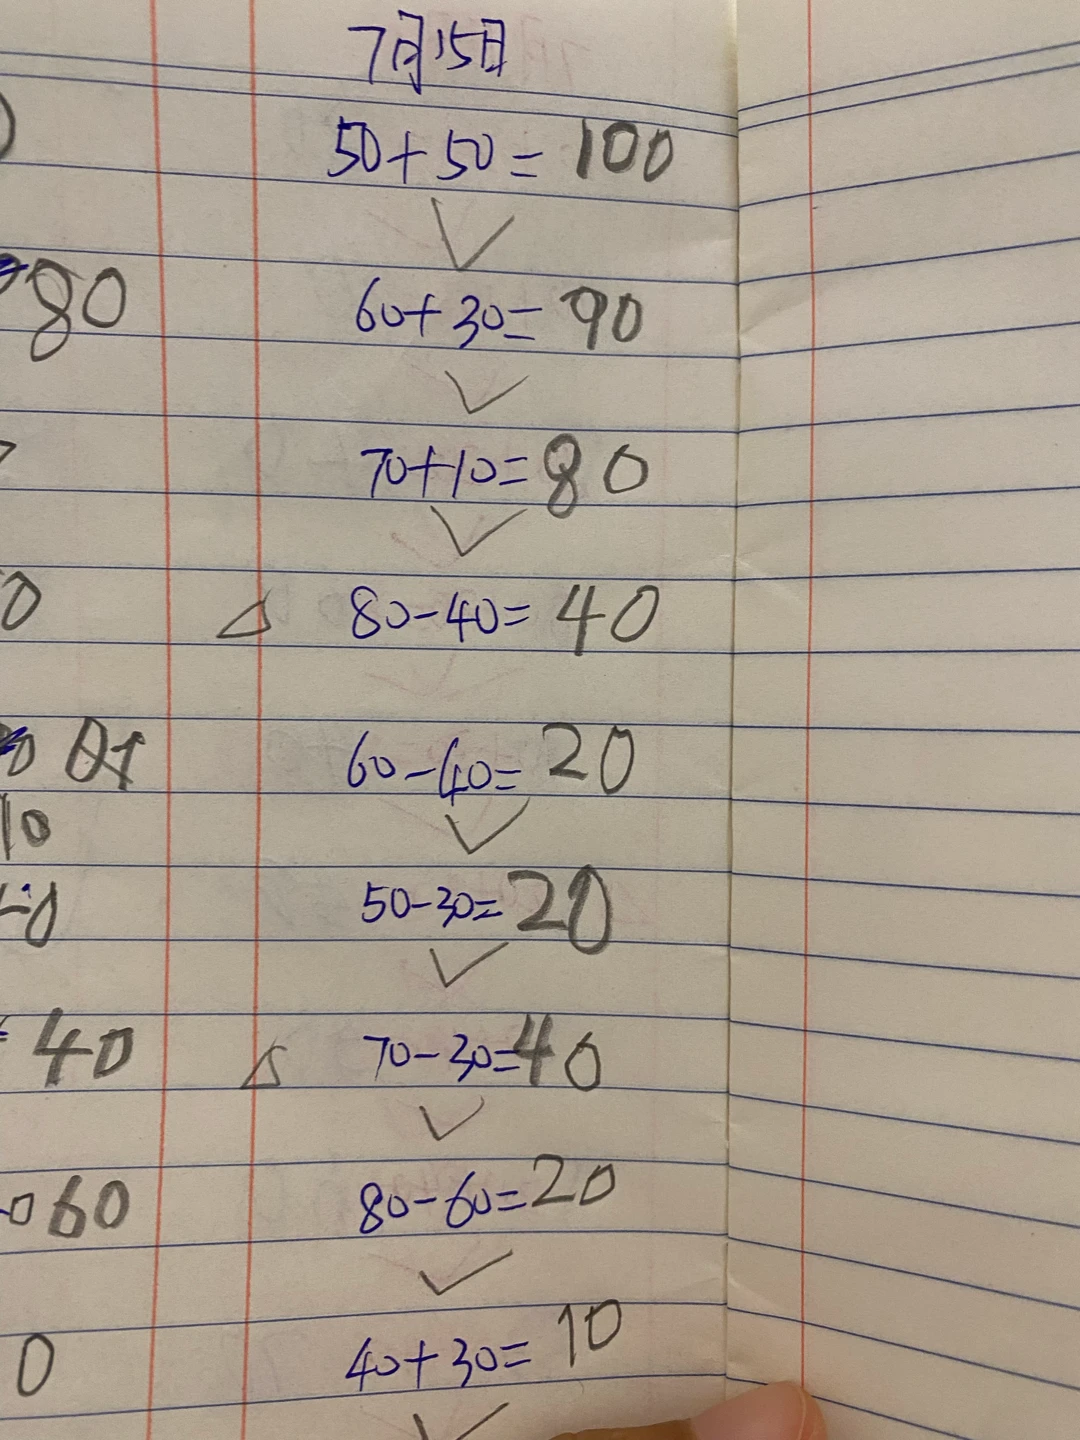 7月15日
50+50=100
60+30=90
80
70+10=80
80-40=40
0
60-40=20
10
50-30=20
70-30=40
40
80-60=20
60
40+30=10
0